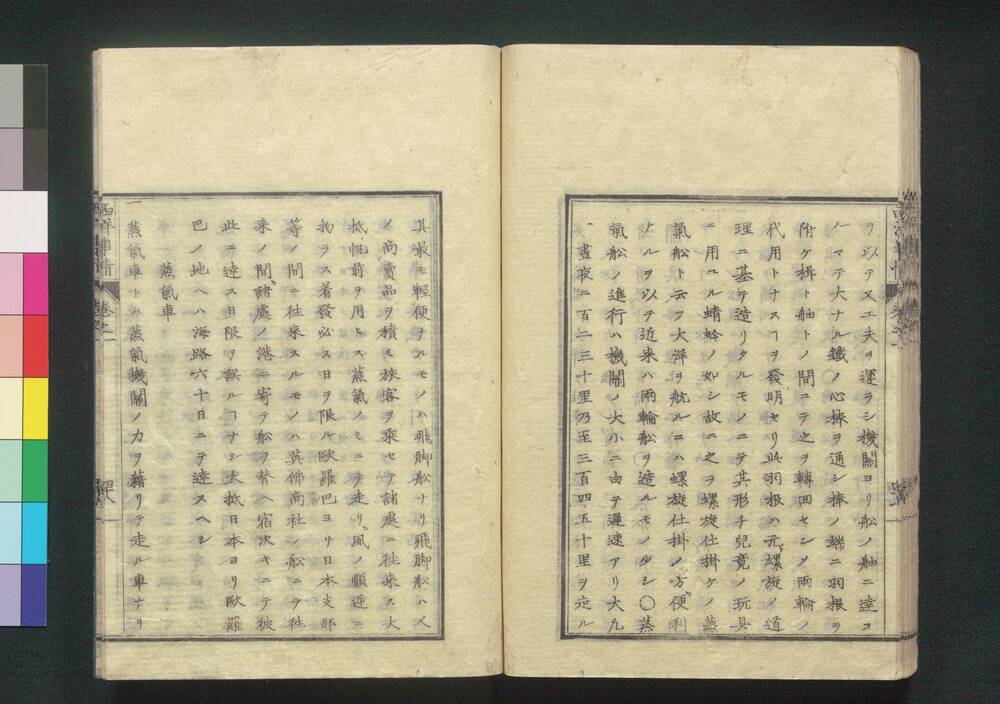 ヲ以テ又工夫ヲ運ラシ機關ヨリ舩ノ舳ニ達ス
ルマテ大ナル鐵ノ心棒ヲ通シ棒ノ端ニ羽根ヲ
附ケ楫ト舳トノ間ニテ之ヲ轉回セシメ兩輪ノ
代用トナスヿヲ發明セリ此羽根ハ元螺旋ノ道
理ニ基テ造リタルモノニテ其形チ兒童ノ玩具
ニ用ユル蜻蛉ノ如シ故ニ之ヲ螺旋仕掛ケノ蒸
氣舩ト云フ大洋ヲ航ルニハ螺旋仕掛ノ方便利
ナルヲ以テ近来ハ兩輪舩ヲ造ルモノ少シ〇蒸
氣舩ノ進行ハ機關ノ大小ニ由テ遲速アリ大凡
一晝夜ニ百二三十里乃至三百四五十里ヲ走ル
其最モ輕便ナルモノハ飛脚舩ナリ飛脚舩ハ人
ノ商賣品ヲ積ミ旅客ヲ乘セテ諸處ニ徃来ス大
抵帆前ヲ用ヒス蒸氣ノミニテ走リ風ノ順逆ニ
拘ラス着發必ス日ヲ限ル歐羅巴ヨリ日本支那
等ノ間ニ徃來スルモノハ英佛商社ノ舩ニテ徃
来ノ間諸處ノ港ニ寄テ舩ヲ替ヘ宿次キニテ彼
此ニ達ス日限ヲ誤ルヿナシ大抵日本ヨリ歐羅
巴ノ地ヘハ海路六十日ニテ達スヘシ
蒸氣車
一蒸氣車トハ蒸氣機關ノ力ヲ藉リテ走ル車ナリ
西洋事情 卷之一